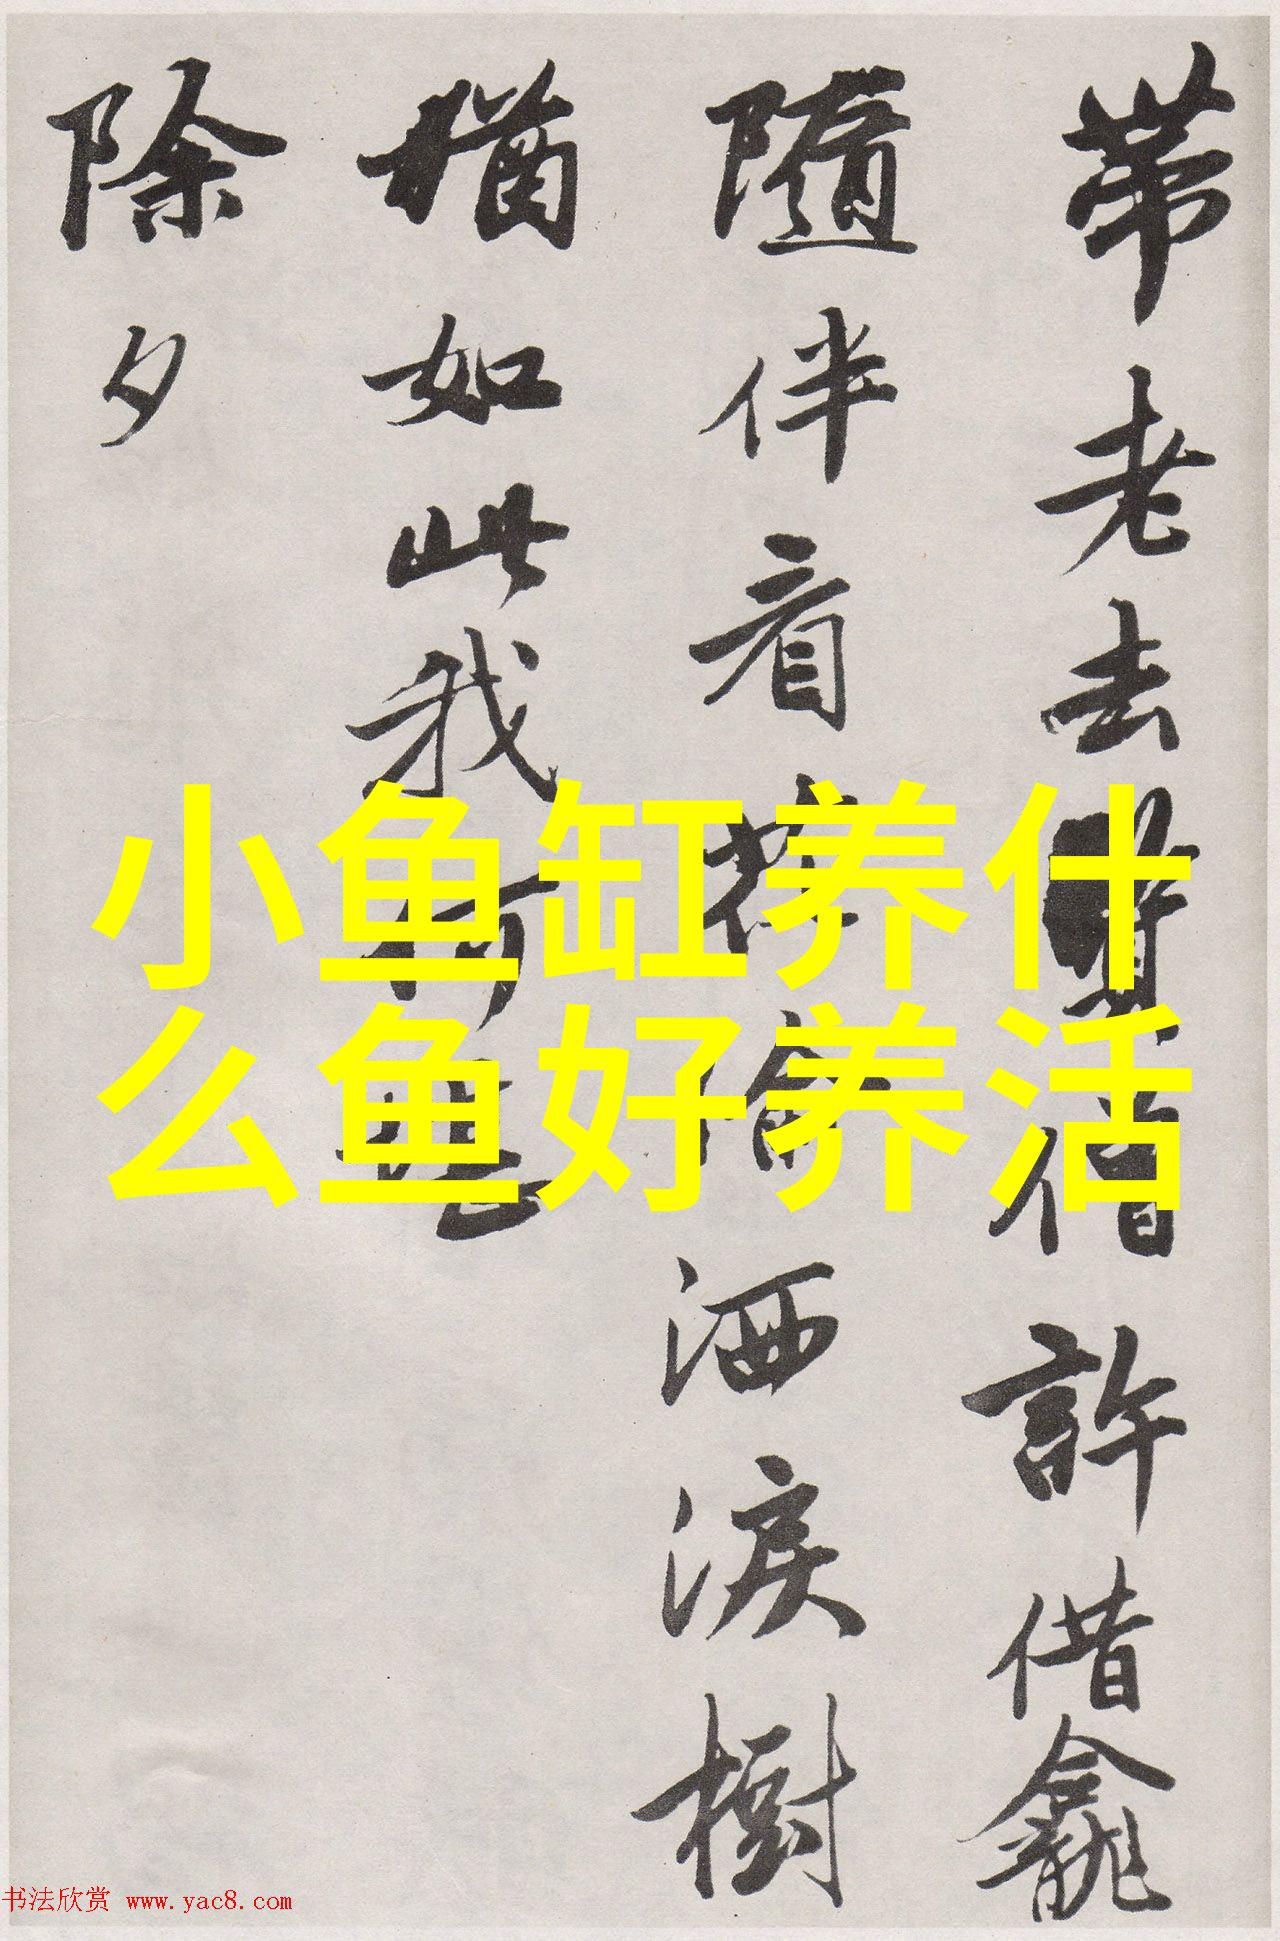 小鱼缸养什
么鱼好养活
帶老去許借龕
隨伴看洒淚樹
猶如此我何堪
除夕
书法欣赏 www.yac8.com